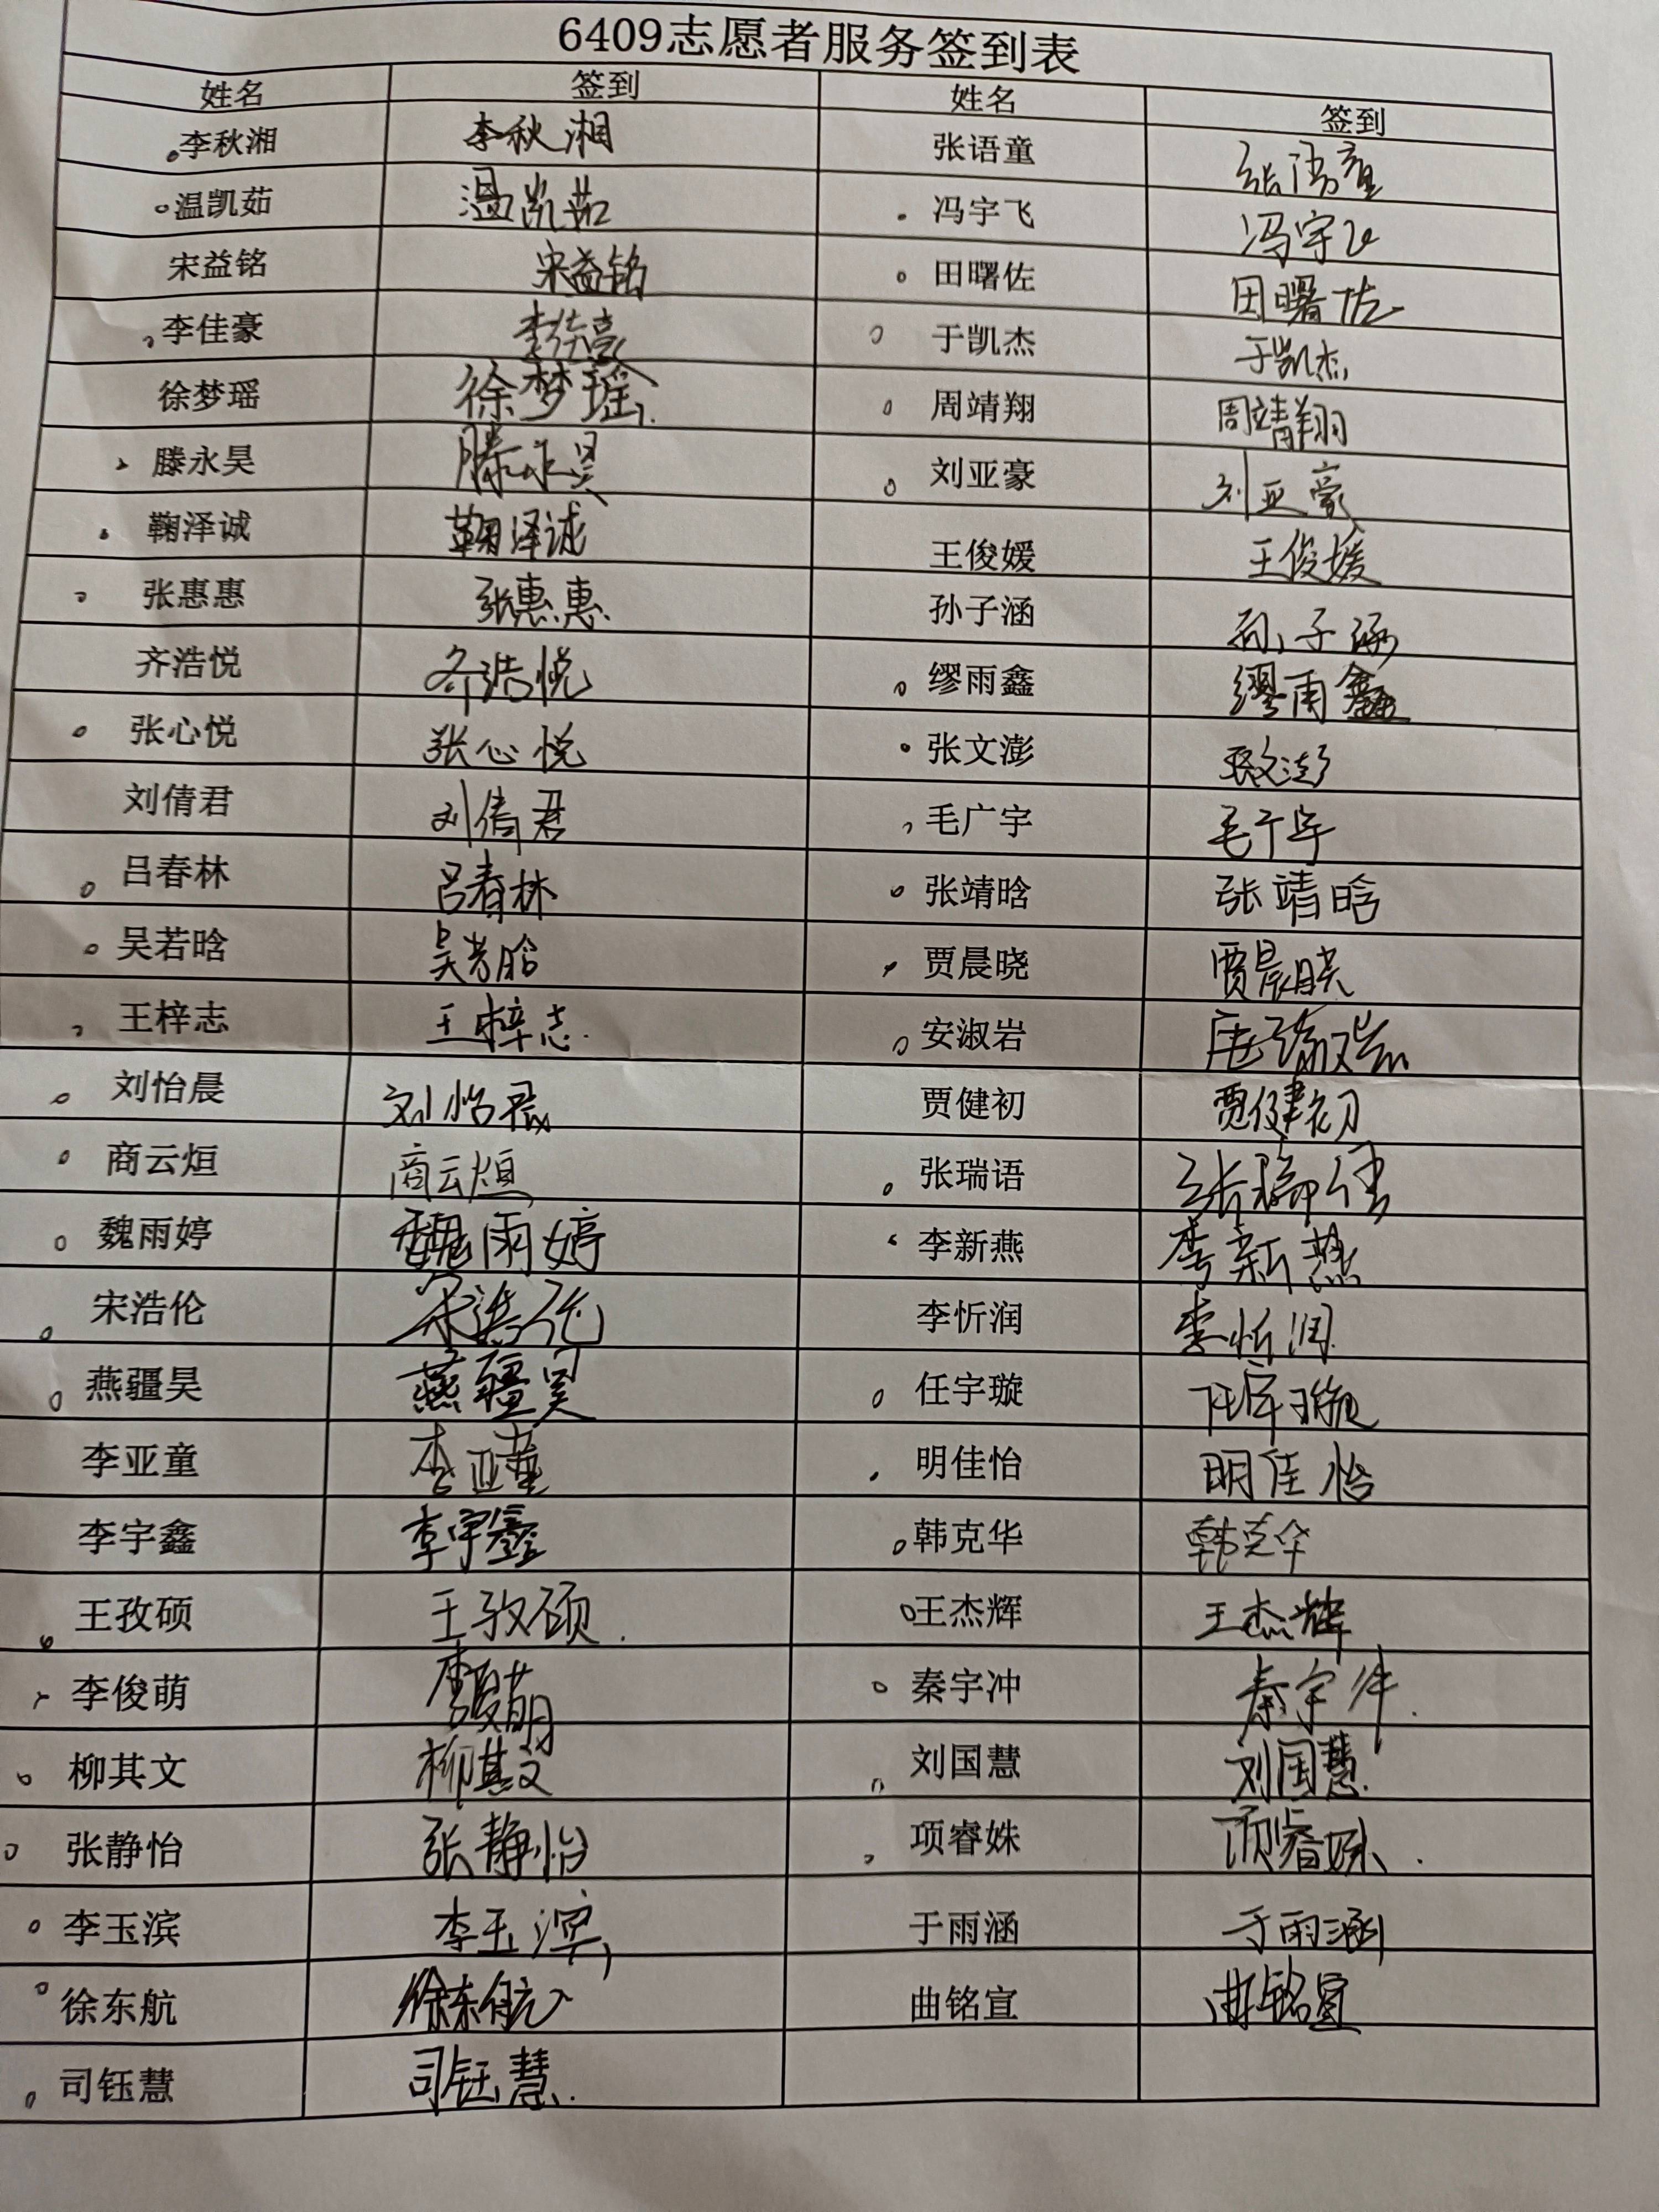 6409志愿者服务签到表
姓名 签到 姓名 签到
李秋湘 李秋湘 张语童 张语童
温凯茹 温凯茹 冯宇飞 冯宇飞
宋益铭 宋益铭 田曙佐 田曙佐
李佳豪 李佳豪 于凯杰 于凯杰
徐梦瑶 徐梦瑶 周靖翔 周靖翔
滕永昊 滕永昊 刘亚豪 刘亚豪
鞠泽诚 鞠泽诚 王俊媛 王俊媛
张惠惠 张惠惠 孙子涵 孙子涵
齐浩悦 齐浩悦 缪雨鑫 缪雨鑫
张心悦 张心悦 张文澎 张文澎
刘倩君 刘倩君 毛广宇 毛广宇
吕春林 吕春林 张靖晗 张靖晗
吴若晗 吴若晗 贾晨晓 贾晨晓
王梓志 王梓志 安淑岩
刘怡晨 刘怡晨 贾健初 贾健初
商云烜 商云烜 张瑞语 张瑞语
魏雨婷 魏雨婷 李新燕 李新燕
宋浩伦 宋浩伦 李忻润 李忻润
燕疆昊 燕疆昊 任宇璇 任宇璇
李亚童 李亚童 明佳怡 明佳怡
李宇鑫 李宇鑫 韩克华 韩克华
王孜硕 王孜硕 王杰辉 王杰辉
李俊萌 李俊萌 秦宇冲 秦宇冲
柳其文 柳其文 刘国慧 刘国慧
张静怡 张静怡 项睿姝 项睿姝
李玉滨 李玉滨 于雨涵 于雨涵
徐东航 徐东航 曲铭宣 曲铭宣
司钰慧 司钰慧